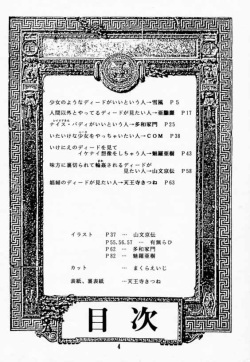 少女のようなディードがいいという人→雪風 P5
人間以外とやってるディードが見たい人→ P17
ナイス・バディがいいという人→多和家門 P25
いけにえのディードを見て
イケナイ想像をしちゃう人→魅羅亜樹 P43
味方に裏切られて輪姦されるディードが
見たい人→山文京伝 P58
暗緑のディードが見たい人→天王寺きつね P63
イラスト P37 … 山文京伝
P55,56,57 … 有無らひ
P62 … 多和家門
P82 … 魅羅亜樹
カット … まくらえいじ
表紙、裏表紙 …天王寺きつね
目次
4